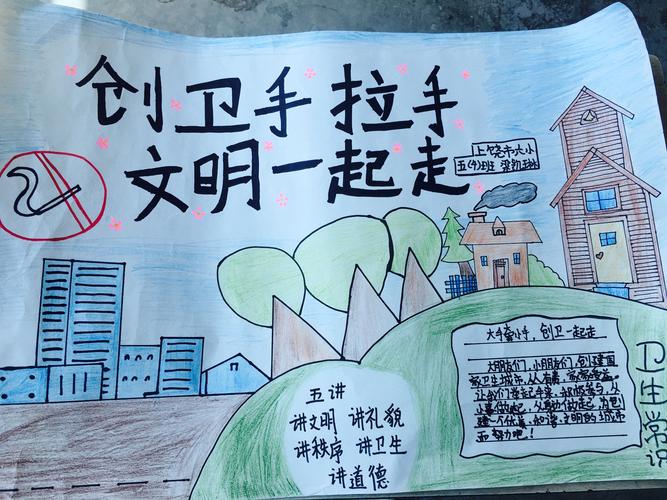 创卫手拉手
文明一起走
上饶市六小
五(4)班 梁
五讲
讲文明 讲礼貌
讲秩序 讲卫生
讲道德
大手牵小手，创卫一起走
大朋友们，小朋友们，创建国
家卫生城市，人人有责，家家受益，
让我们牵起手来，积极参与，从
小事做起，从身边做起，为创
建一个优美、和谐、文明的城市
而努力吧！
卫生常识